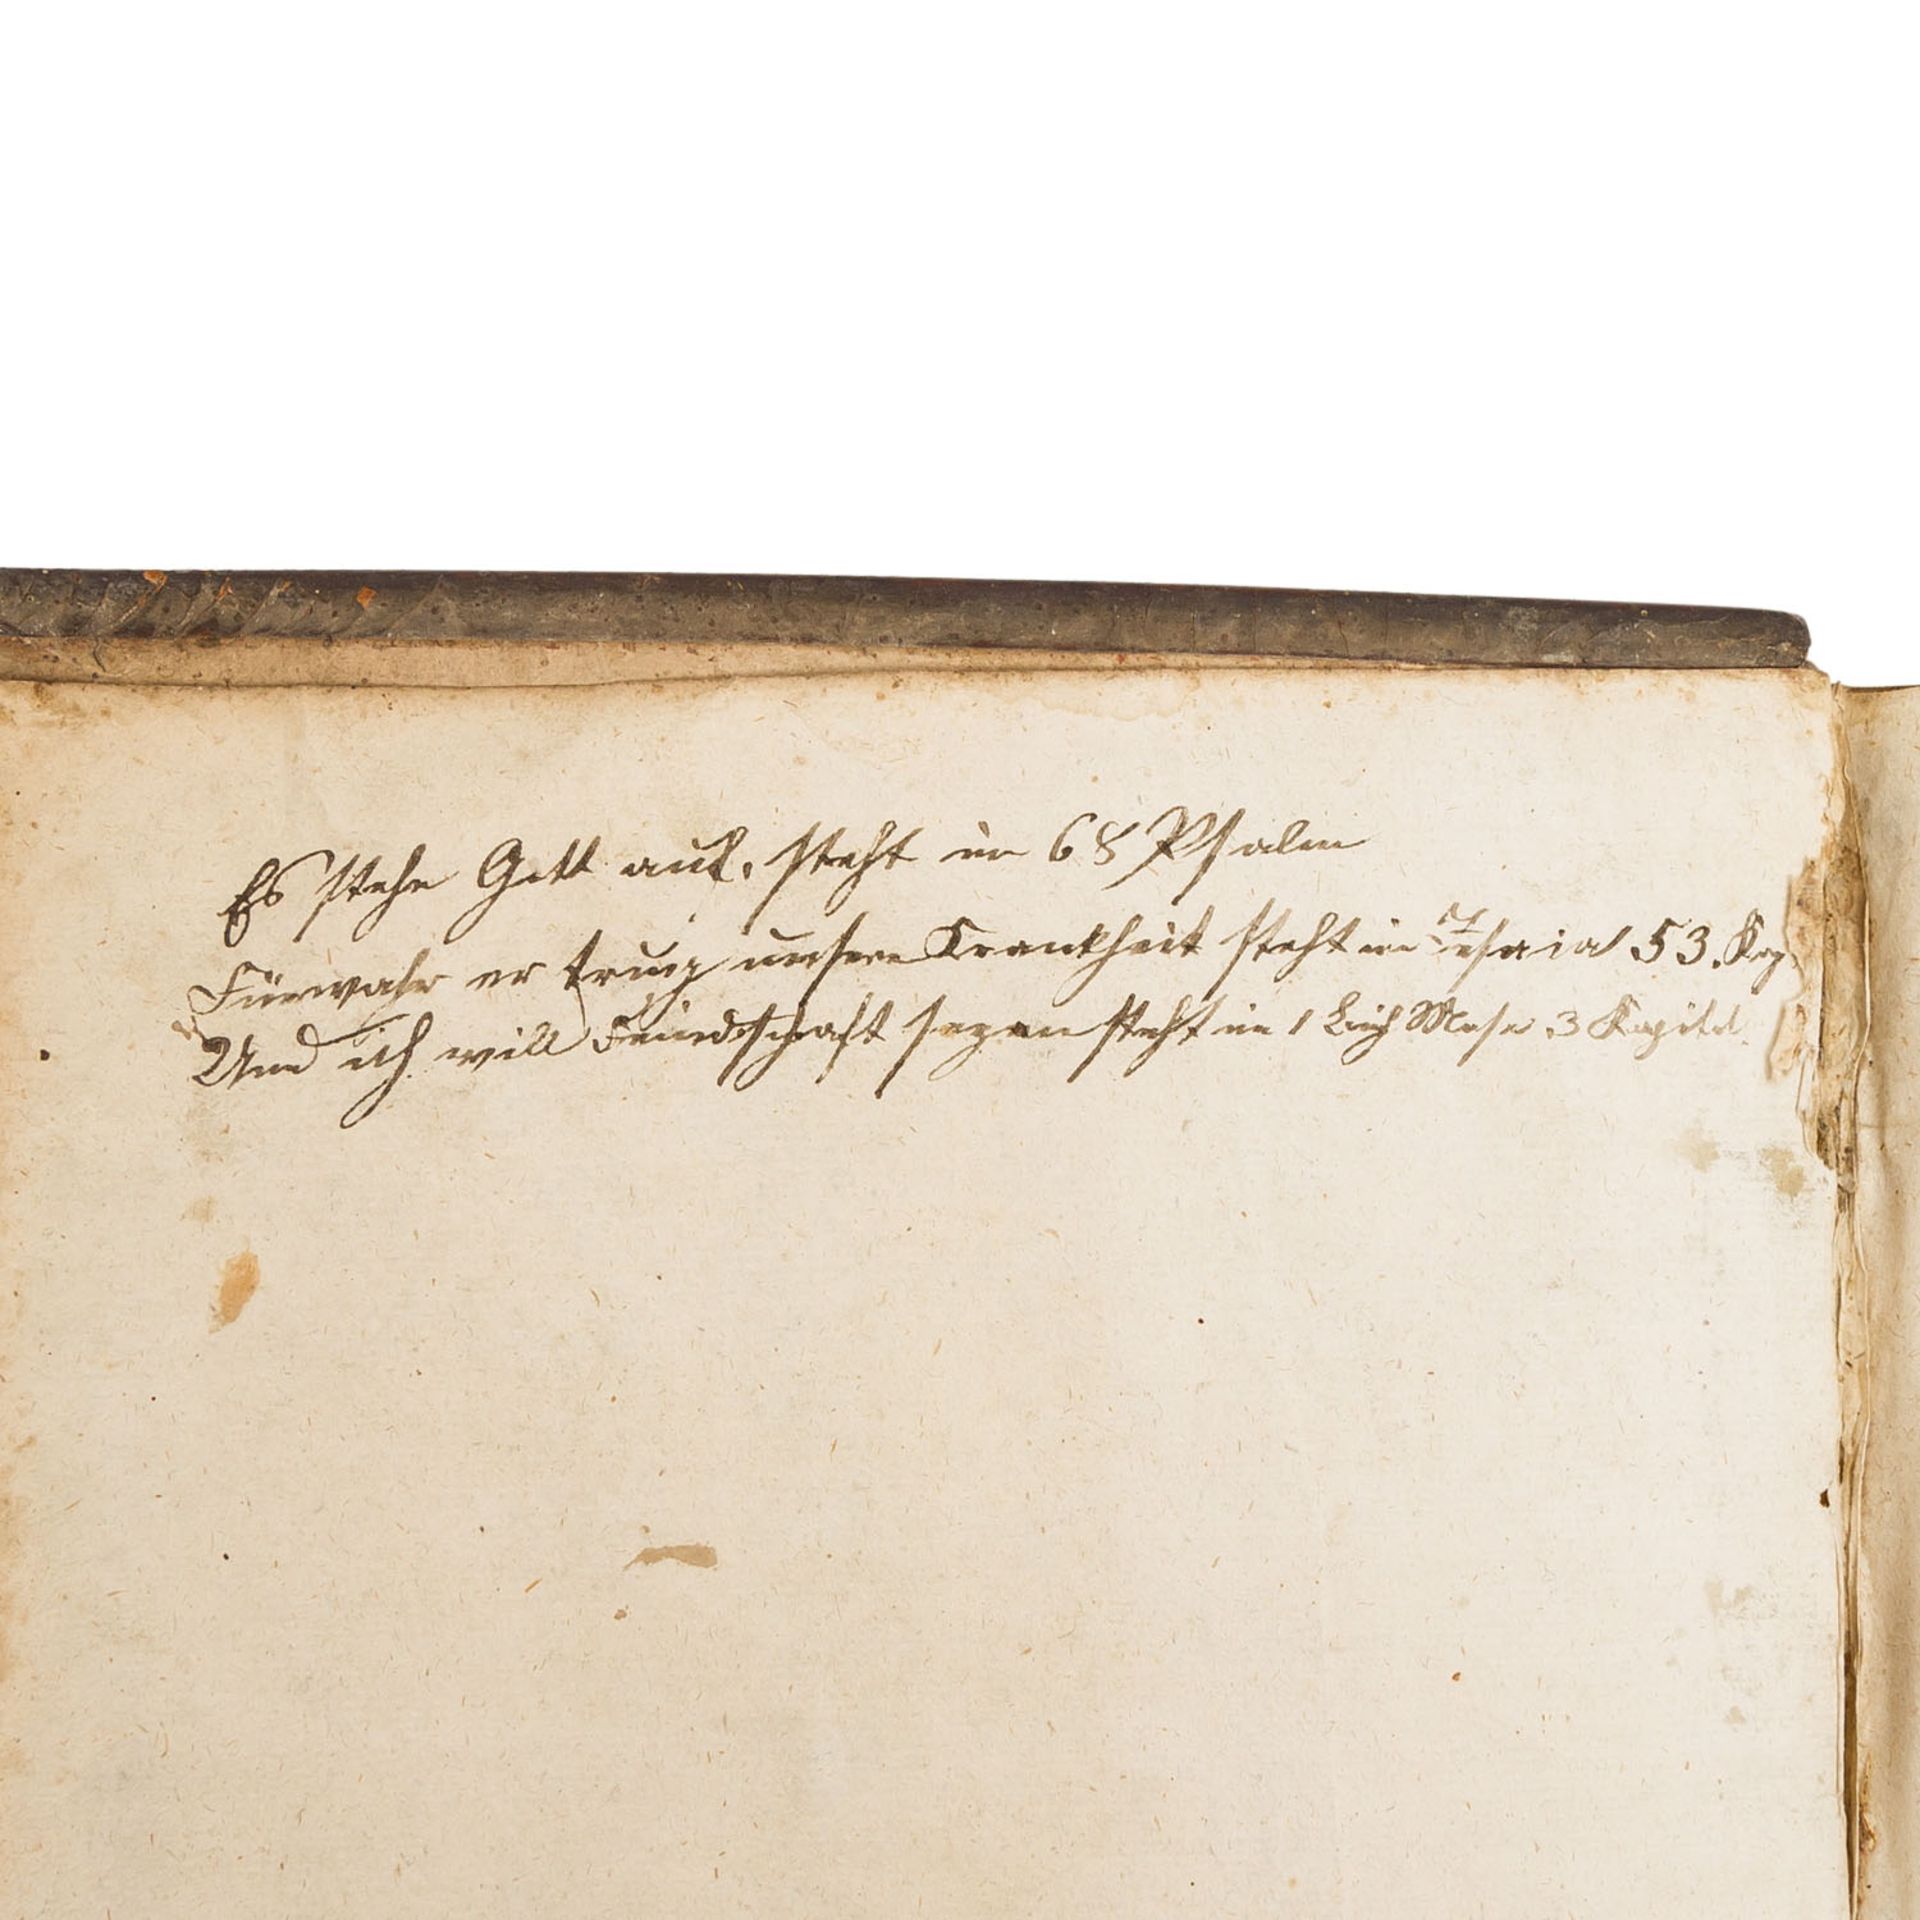 Es stehe Gott auf, steht im 68 Psalm
Fürwahr er trug unsere Krankheit steht im Jesaia 53. Kap.
Und ich will Feindschaft sezen steht im 1 Buch Mose 3 Kapitel